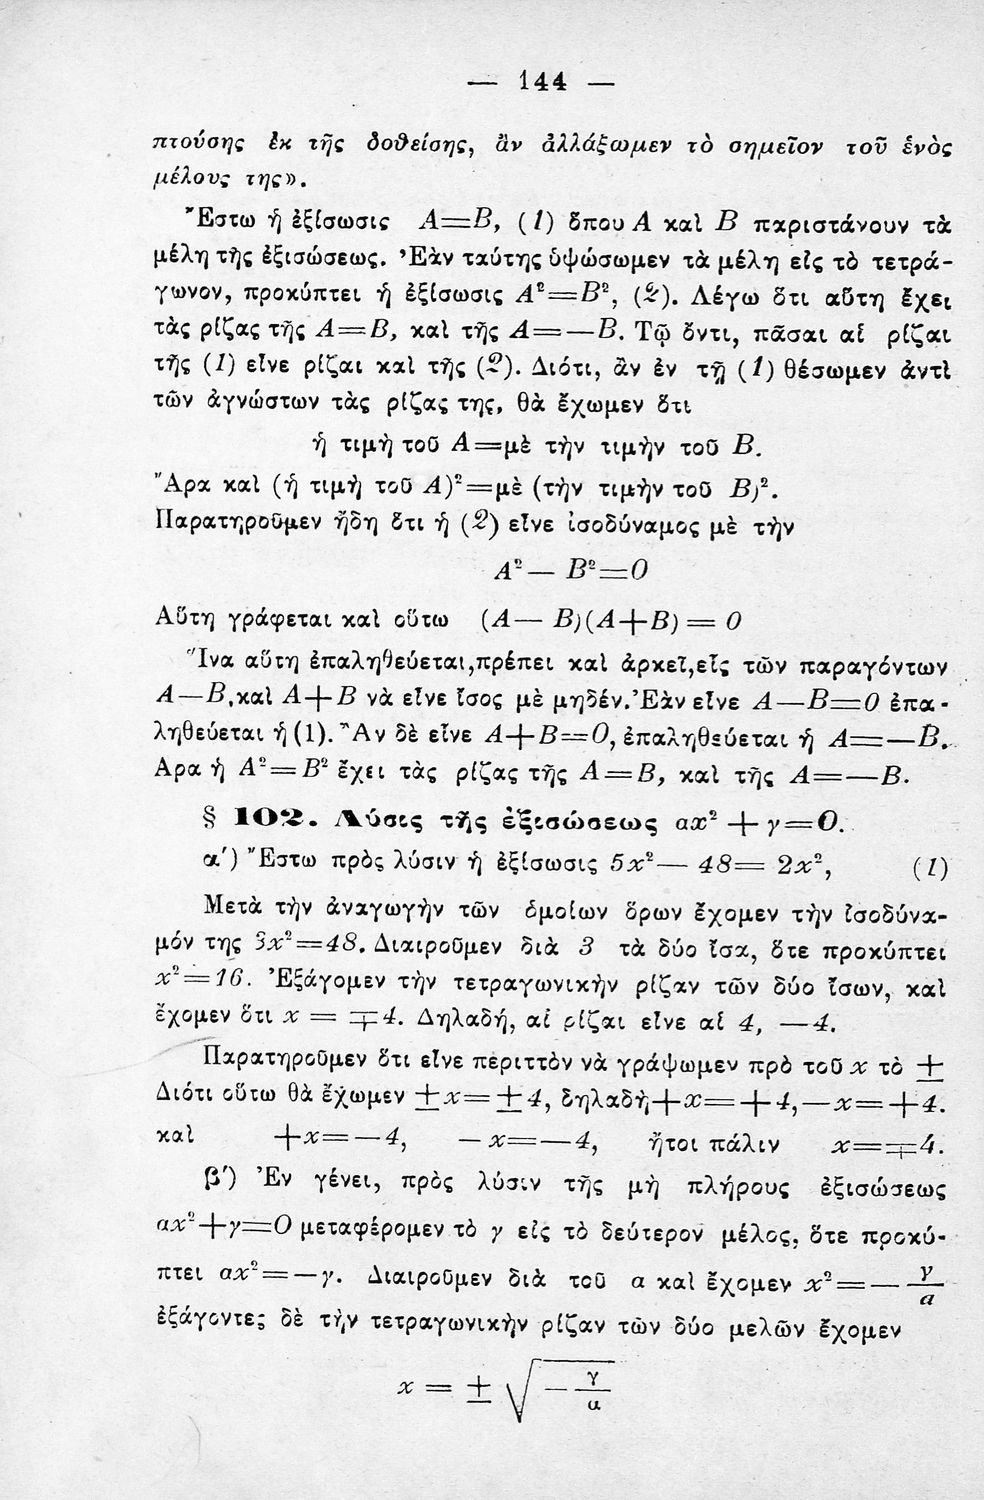 — 144 —
πτούσης ἐκ τῆς δοθείσης, ἂν ἀλλάξωμεν τὸ σημεῖον τοῦ ἑνὸς
μέλους της».
Ἔστω ἡ ἐξίσωσις A=B, (1) ὅπου A καὶ B παριστάνουν τὰ
μέλη τῆς ἐξισώσεως. Ἐὰν ταύτης ὑψώσωμεν τὰ μέλη εἰς τὸ τετρά-
γωνον, προκύπτει ἡ ἐξίσωσις A²=B², (2). Λέγω ὅτι αὕτη ἔχει
τὰς ρίζας τῆς A=B, καὶ τῆς A=—B. Τῷ ὄντι, πᾶσαι αἱ ρίζαι
τῆς (1) εἶνε ρίζαι καὶ τῆς (2). Διότι, ἂν ἐν τῇ (1) θέσωμεν ἀντὶ
τῶν ἀγνώστων τὰς ρίζας της, θὰ ἔχωμεν ὅτι
ἡ τιμὴ τοῦ A=μὲ τὴν τιμὴν τοῦ B.
Ἄρα καὶ (ἡ τιμὴ τοῦ A)²=μὲ (τὴν τιμὴν τοῦ B)².
Παρατηροῦμεν ἤδη ὅτι ἡ (2) εἶνε ἰσοδύναμος μὲ τὴν
A²— B²=0
Αὕτη γράφεται καὶ οὕτω (A— B)(A+B) = 0
Ἵνα αὕτη ἐπαληθεύεται,πρέπει καὶ ἀρκεῖ,εἷς τῶν παραγόντων
A—B,καὶ A+B νὰ εἶνε ἴσος μὲ μηδέν.Ἐὰν εἶνε A—B=0 ἐπα-
ληθεύεται ἡ (1). Ἂν δὲ εἶνε A+B=0, ἐπαληθεύεται ἡ A=—B.
Αρα ἡ A²=B² ἔχει τὰς ρίζας τῆς A=B, καὶ τῆς A=—B.
§ 102. Λύσις τῆς ἐξισώσεως αx² + γ=0.
α′) Ἔστω πρὸς λύσιν ἡ ἐξίσωσις 5x²— 48= 2x², (1)
Μετὰ τὴν ἀναγωγὴν τῶν ὁμοίων ὅρων ἔχομεν τὴν ἰσοδύνα-
μόν της 3x²=48. Διαιροῦμεν διὰ 3 τὰ δύο ἴσα, ὅτε προκύπτει
x²=16. Ἐξάγομεν τὴν τετραγωνικὴν ρίζαν τῶν δύο ἴσων, καὶ
ἔχομεν ὅτι x = ∓4. Δηλαδή, αἱ ρίζαι εἶνε αἱ 4, —4.
Παρατηροῦμεν ὅτι εἶνε περιττὸν νὰ γράψωμεν πρὸ τοῦ x τὸ ±
Διότι οὕτω θὰ ἔχωμεν ±x=±4, δηλαδὴ+x=+4,—x=+4.
καὶ +x=—4, —x=—4, ἤτοι πάλιν x=∓4.
β′) Ἐν γένει, πρὸς λύσιν τῆς μὴ πλήρους ἐξισώσεως
αx²+γ=0 μεταφέρομεν τὸ γ εἰς τὸ δεύτερον μέλος, ὅτε προκύ-
πτει αx²=—γ. Διαιροῦμεν διὰ τοῦ α καὶ ἔχομεν x²=— γ/α
ἐξάγοντες δὲ τὴν τετραγωνικὴν ρίζαν τῶν δύο μελῶν ἔχομεν
x = ± √— γ/α